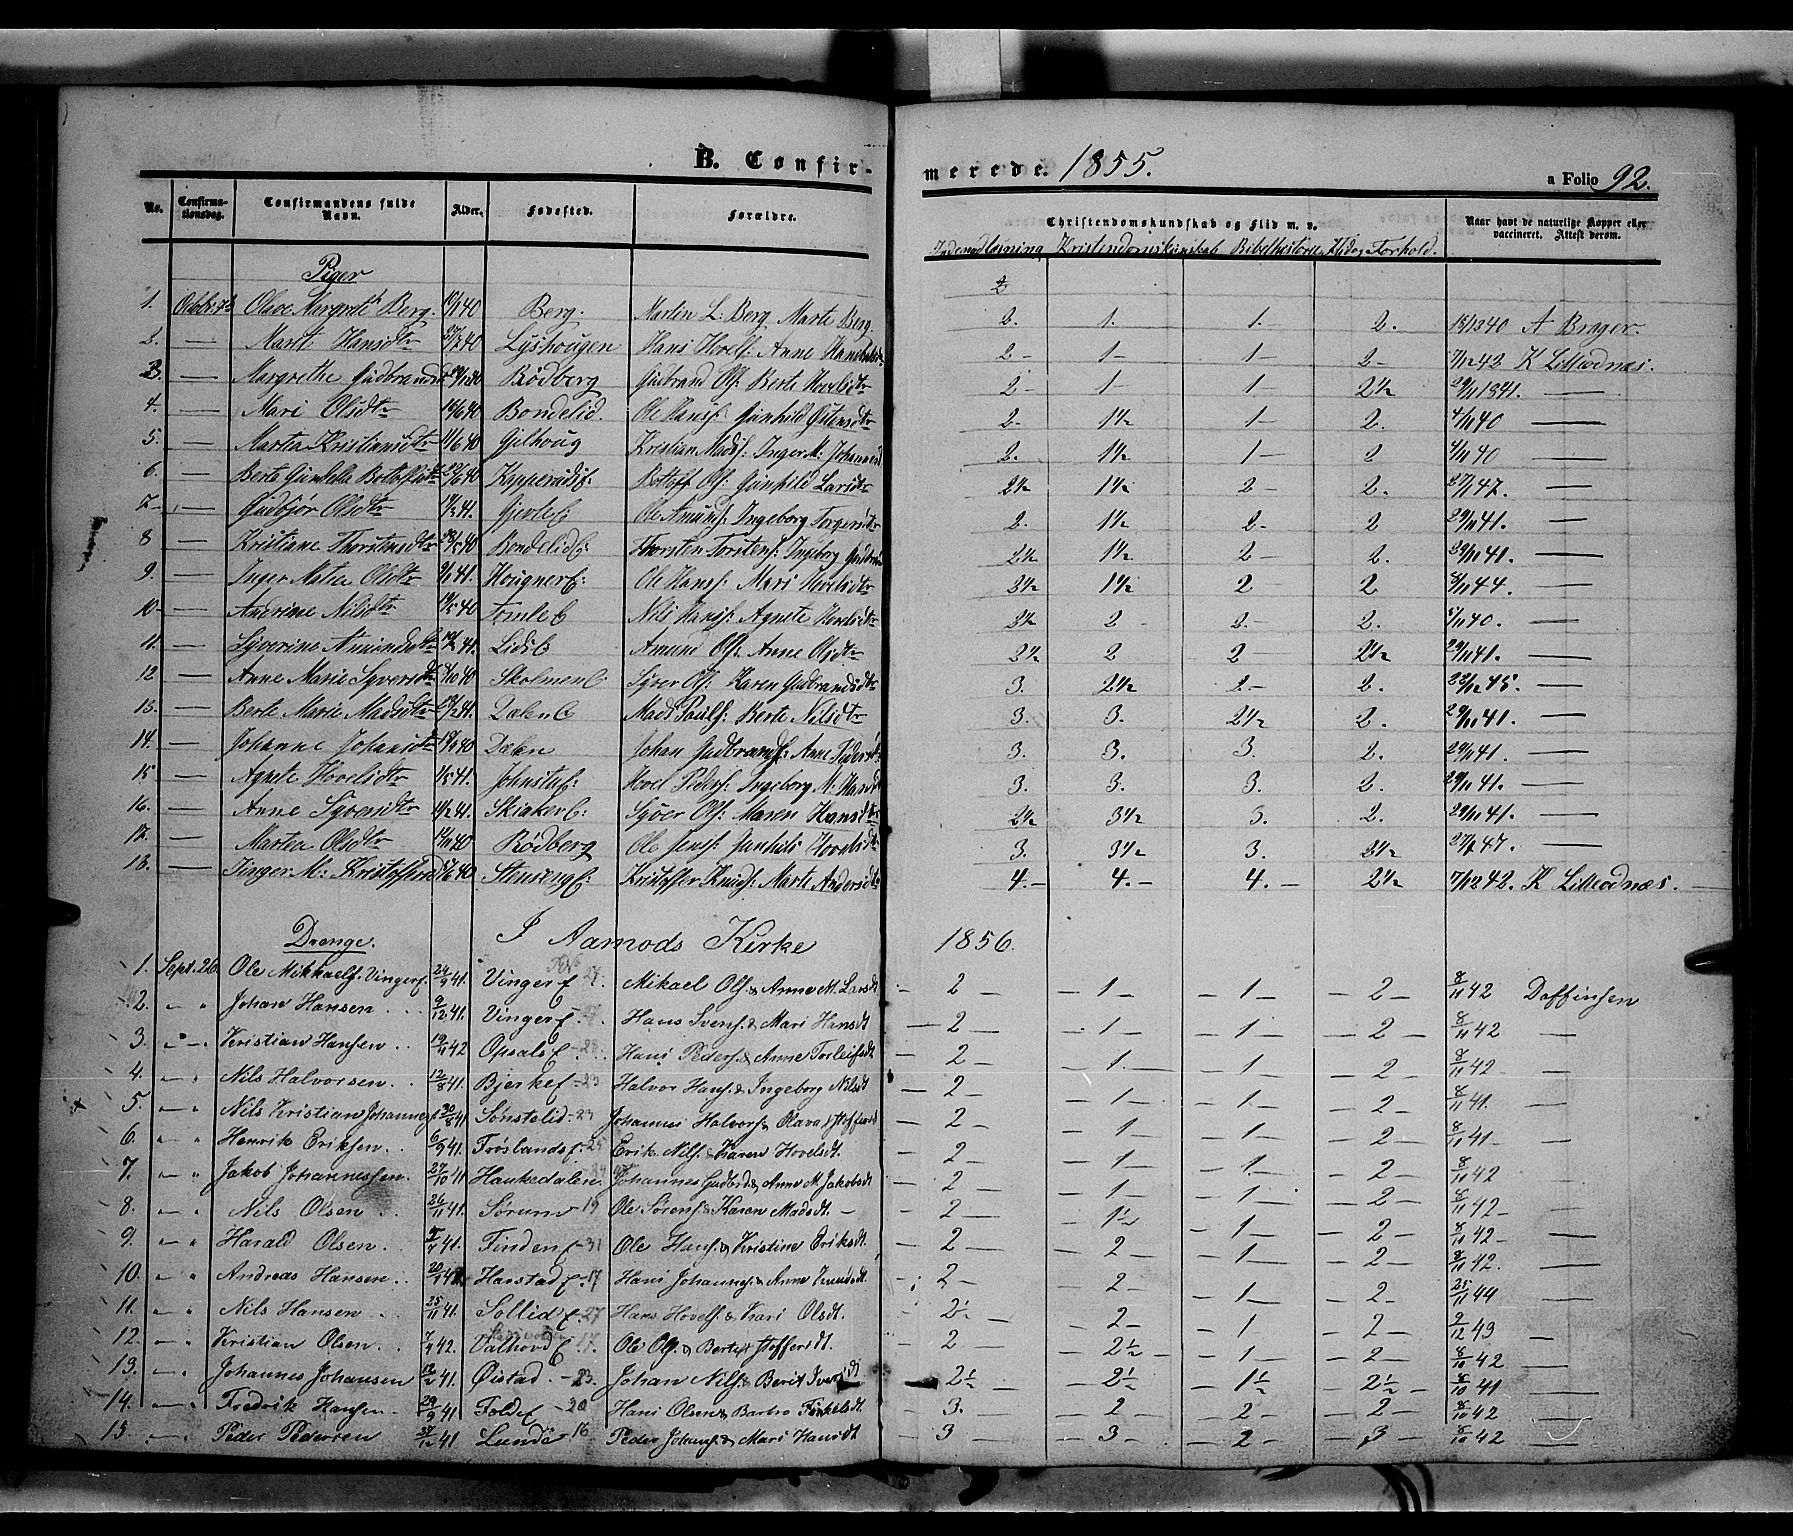 B. Confirmerede. 1855. a Folio 92.
No. Confirmationsdag. Confirmandens fulde Navn. Alder. Fødested. Forældre. Christendomskundskab og Flid m. v. Naar havt de naturlige Kopper eller vaccineret. Attest derom.
Indenadlæsning Kristendomskundskab Bibelhistorie Flid og Forhold.
Piger
1. Octobr 7de Olave Margreth Berg. 40 Berg. Martin L. Berg Marte Berg. 2. 1. 1. 2. 40 A Brager
2. — Marit Hansdtr 40 Lyshougen Hans Hovels: Anne 2 — 1 — 1 — 2 — 7/12 42 K Lillladnæs.
3. — Margrethe Gudbrandsdtr Rødberg Gudbrand Ols: Berte Hovelsdtr 2 — 1 1 — 2½ 29/11 1841. —
4. — Mari Olsdtr 40 Bondelid. Ole Hans: Gunhild Østensdtr 2. 1½ 1 — 2. 4/11 40 —
5. — Martia Kristiansdtr 11/6 40 Gjelhoug Kristian Mads: Inger M: Johannesd 2. 1½ 1 — 2 4/11 40 —
6. — Berte Gundelle Bottolfsdtr 40 Bottolf Ols: Gunhild Larsdtr 2½ 1½ 2 — 2. 27/1 47. —
7 — Gudbjør Olsdtr 41. Gjerle E Ole Amunds: Ingeborg Torgersdtr 2. 1½ 2 — 2 29/11 41. —
8 — Kristiane Thorstensdtr 40 Bondelid E: Thorsten Torstens: Ingeborg 2½ 1½ 2 — 2. 29/11 41. —
9. — Inger Matea Olsdtr 41. Hougner E: Ole Hans: Mari Hovelsdtr 2½ 1½ 2 2 8/11 44. —
10 — Andrine Nilsdtr 40 Tomle E Nils Hans: Agnete Hovelsdtr 2½ 2 2 — 2. 5/11 40. —
11. — Syverine Amundsdtr 41. Lids E Amund Ols: Anne Olsdtr 2½ 2 2 — 2½ 29/11 41. —
12 — Anne Marie Syversdtr 40 Skolmen E: Syver Ols: Karen Gudbrandsdtr 3. 2½ 2 — 2. 22/12 45. —
13. — Berte Marie Madsdtr 41. Dælen E Mads Pauls: Berte Nilsdtr 3. 3. 2½ 2. 29/11 41. —
14. — Johanne Johansdtr 40 Dælen Johan Gudbrands: Anne 3. 3. 3. 2. 29/11 41. —
15 — Agnete Hovelsdtr 41. Johnstu E: Hovel Peders: Ingeborg M: Hansd 3. 3. 3. 2. 29/11 41. —
16. — Anne Syversdtr 41. Skiaker E: Syver Ols: Maren Hansdtr 2½ 3½ 3. 2. 29/11 41. —
17. — Martea Olsdtr 40 Rødberg Ole Jens: Gunhild Hovelsdtr 3. 3½ 3. 2½ 27/1 47. —
18. — Inger M: Kristoffersd 40. Stenseng E: Kristoffer Knuds: Marte Andersdtr 4. — 4. — 4. — 2½ 7/12 42. K Lillladnæs. —
Drenge. I Aamods Kirke 1856.
1. Sept. 26. Ole Mikkaels. Vingere. 24/9 41. Vinger E 27. Mikael Ols. & Anne M. Larsdt — 2 — 1 — 1 — 2 — 8/11 42 Doffinsen
2. " Johan Hansen 9/12 41. Vinger E 27. Hans Svens. & Mari Hansdt — 2 — 1 — 1 — 2 — 8/11 42 —
3. " Kristian Hansen 19/11 42 Opsals E 28. Hans Peders. & Anne Torleifsdt — 2 — 1 — 1 — 2 — 8/11 42 —
4. " Nils Halvorsen 12/8 41. Bjerke E 23 Halvor Hans. & Ingeborg Nilsdt — 2 — 1 — 1 — 2 — 8/11 41. —
5. " Nils Kristian Johannes. 30/8 41 Sønstelid 23 Johannes Halvors. & Olava Stoffersdt — 2 — 1 — 1 — 2 — 8/11 41 —
6. " Henrik Eriksen 6/9 41. Frøslands E 25 Erik Nils. & Karen Hovelsdt. — 2 — 1 — 1 — 2 — 8/11 42
7. " Jakob Johannessen. 27/10 41 Haukedalen Johannes Gudbrd & Anne M. Jakobsdt — 2 — 1 — 1 — 2 — 8/11 42 —
8. " Nils Olsen 26/11 41. Sørum 19 Ole Sørens. & Karen Madsdt. — 2 — 1½ — 1 — 2 — 8/11 42. —
9. " Harald Olsen 41. Finden E 31 Ole Hans. & Kristine Eriksdt. — 2 — 2 — 1 — 2 — 8/11 42. —
10. " Andreas Hansen Harstad E 17 Hans Johannes. & Anne Knudsdt. — 2 — 2 — 1 — 2 — 25/11 44 —
11. " Nils Hansen 25/11 41. Sollid E 27 Hans Hovels. & Kari Olsdt. — 2½ — 2 — 1 — 2 — 9/12 43 —
12. " Kristian Olsen 7/4 42. Valhovd E 17. Ole Ols. & Berte Stoffersdt — 2 — 2½ — 1 — 2 — 8/10 42 —
13. " Johannes Johansen 41. Øistad 23. Johan Nils. & Berit Iversdt — 2½ — 2½ — 1½ — 2½ — 8/10 41 —
14. " Fredrik Hansen 29/9 41 Folde E 20 Hans Olsen & Barbro Tørkelsdt. — 3. — 2 — 2 — 2 — 8/10 42 —
15. " Peder Pedersen 41 Lunde 16 Peder Johans. & Mari Hansdt — 3 — 3 — 2 — 3 — 8/10 42 —